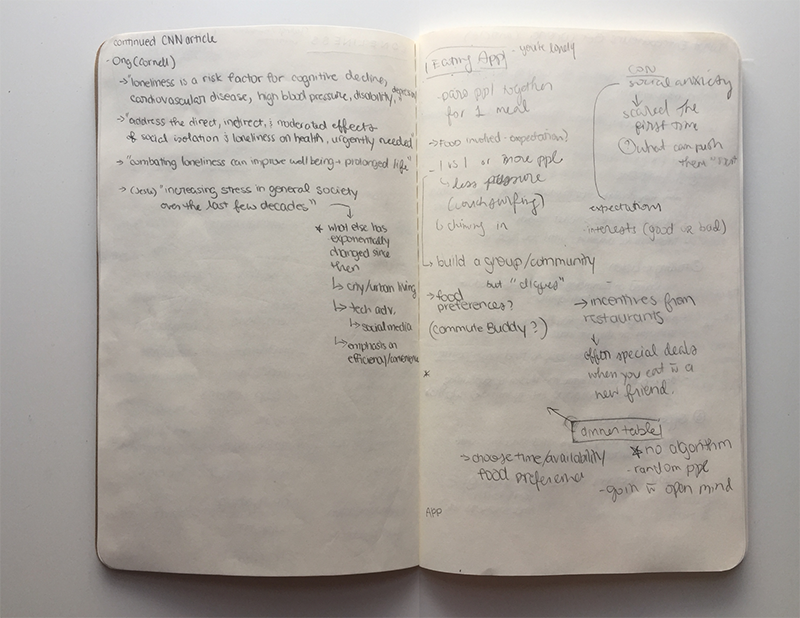 continued CNN article
- Ong (Cornell)
→ "loneliness is a risk factor for cognitive decline, depression
cardiovascular disease, high blood pressure, disability,
→ "address the direct, indirect, & moderated effects
of social isolation & loneliness on health, urgently needed"
→ "combating loneliness can improve well being + prolonged life"
→ "increasing stress in general society
over the last few decades"
* what else has
exponentially
changed since
then
↳ city/urban living
↳ tech adv.
↳ social media
↳ emphasis on
efficiency/convenience
Eating App
- you're lonely
- pare ppl together
for 1 meal
→ Food involved - expectation?
- 1 vs 1 or more ppl
↳ less pressure
(couchsurfing)
↳ chiming in
↳ build a group/community
but "cliques"
→ food
preferences?
(commute Buddy?)
*
CON
social anxiety
↓
scared the
first time
① what can push
them
expectations
- interests (good or bad)
→ incentives from
restaurants
↓
offer special deals
when you eat w a
new friend.
dinner table
→ choose time/availability
food preference
* no algorithm
- random ppl
- go in w open mind
APP